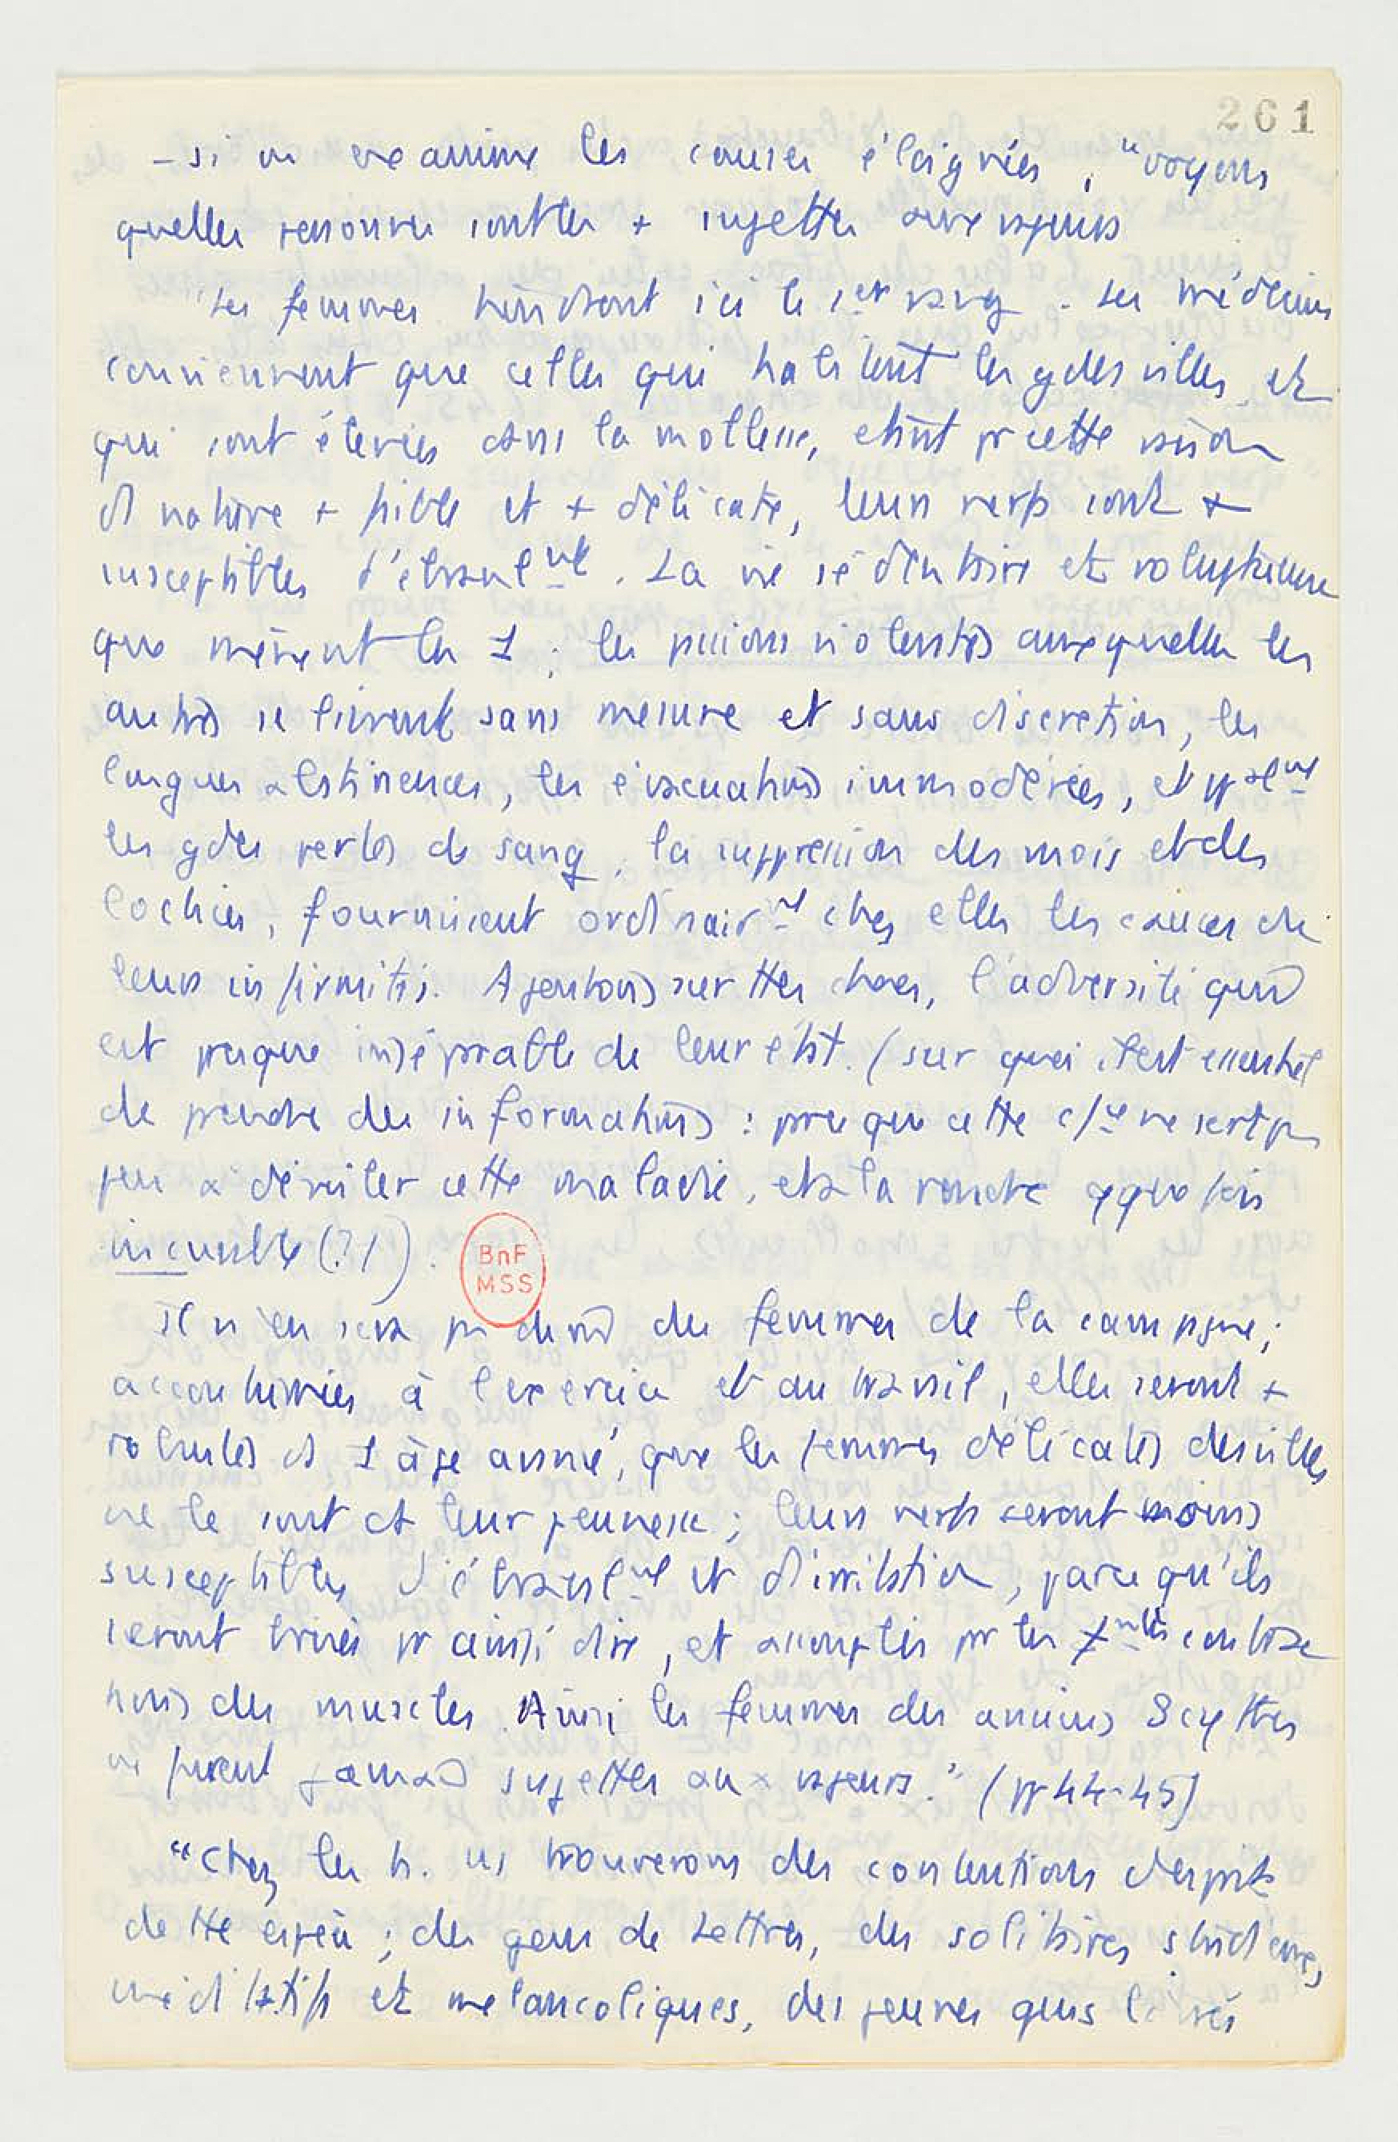 261
- si on examine les causes éloignées, "voyons
quelles personnes sont les + sujettes aux vapeurs
"Les femmes tiendront ici le 1er rang. Les médecins
conviennent que celles qui habitent les gdes villes et
qui sont élevées dans la mollesse, étant pr cette raison
d nature + faible et + délicate, leurs nerfs sont +
susceptibles d'ébranlmt. La vie sédentaire et voluptueuse
que mènent les 1, les passions violentes auxquelles les
autres se livrent sans mesure et sans discrétion, les
longues abstinences, les évacuations immodérées, et ppalmt
les gdes pertes de sang, la suppression des mois et des
lochies, fournissent ordinairmt chez elles les causes de
leurs infirmités. Ajoutons sur ttes choses, l'adversité qui
est presque inséparable de leur état. (sur quoi il est essentiel
de prendre des informations : parce que cette c/se ne sert pas
peu à dévoiler cette maladie, et à la rendre qquefois
incurable (?!).
BnF
MSS
Il n'en sera pas de m̂ des femmes de la campagne;
accoutumées à l'exercice et au travail, elles seront +
robustes ds 1 âge avancé, que les femmes délicates des villes
ne le sont ds leur jeunesse; leurs nerfs seront moins
susceptibles d'ébranlmt et d'irritation, parce qu'ils
seront brisés pr ainsi dire, et assouplis pr les contrac
tions des muscles. Ainsi les femmes des anciens Scythes
ne furent jamais sujettes aux vapeurs." (pp 44-45)
"Chez les h. ns trouverons des contentions d'esprit
de tte espèce; des gens de Lettres, des solitaires studieux,
méditatifs et mélancoliques, des jeunes gens